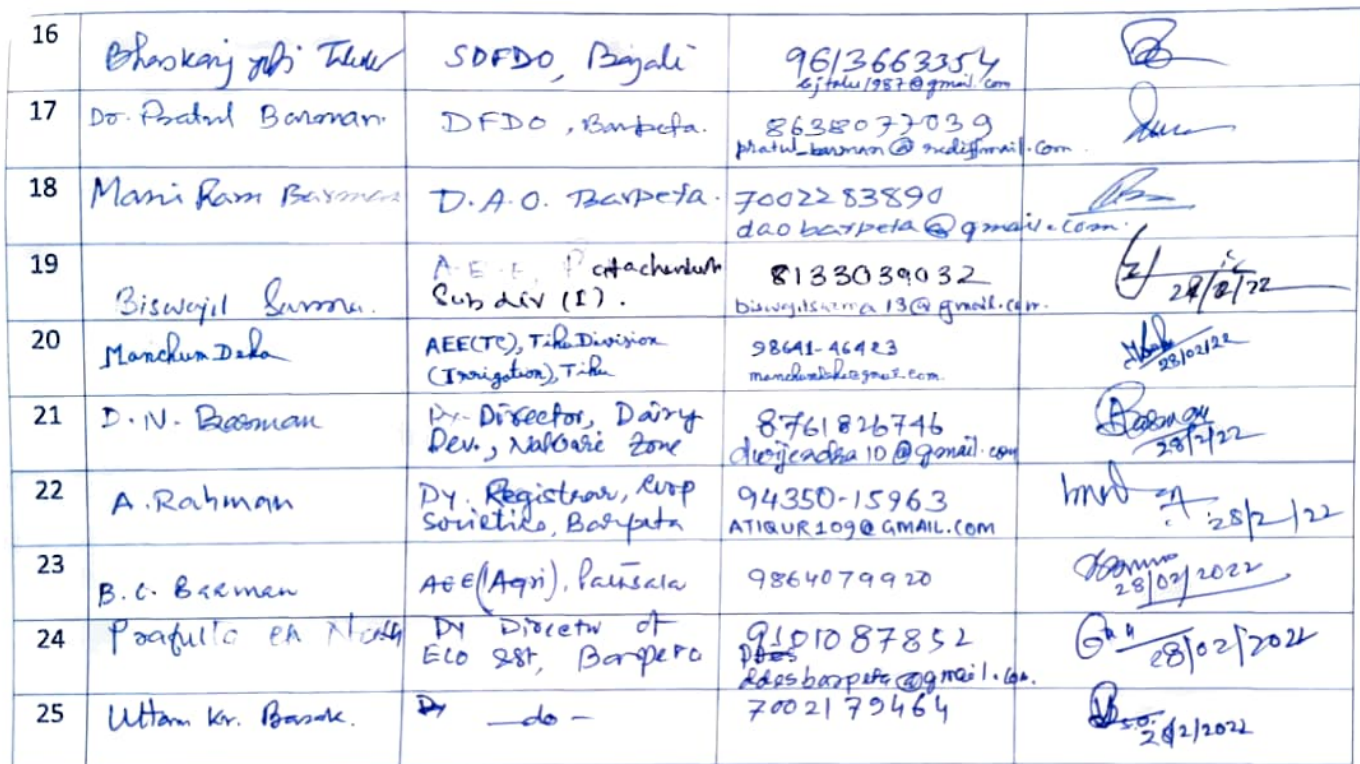 16 Bhaskarjyoti Talukdar SDFDO, Bajali 9613663354
bjtalu1987@gmail.com
17 Dr. Pratul Barman. DFDO, Barpeta. 8638077039
pratul_barman@rediffmail.com
18 Mani Ram Barman D.A.O. Barpeta. 7002283890
daobarpeta@gmail.com.
19 Biswajit Sarma. A.E.E, Patacharkuchi 8133039032
Sub div (I). biswajitsarma13@gmail.com. 28/2/22
20 Manchum Deka AEE(TC), Tihu Division 98641-46423
(Irrigation), Tihu 28/02/22
21 D.N. Barman Dy. Director, Dairy 8761826746 Barman
Dev., Nalbari Zone dwijendra10@gmail.com 28/2/22
22 A. Rahman Dy. Registrar, Coop 94350-15963
Societies, Barpeta ATIQUR109@GMAIL.COM 28/2/22
23 B.C. Barman AEE(Agri), Pathsala 9864079920 28/02/2022
24 Prafulla Ch Nath Dy Director of 9101087852
Eco & St, Barpeta ddesbarpeta@gmail.com. 28/02/2022
25 Uttam Kr. Basak. — do — 7002179464 28/2/2022